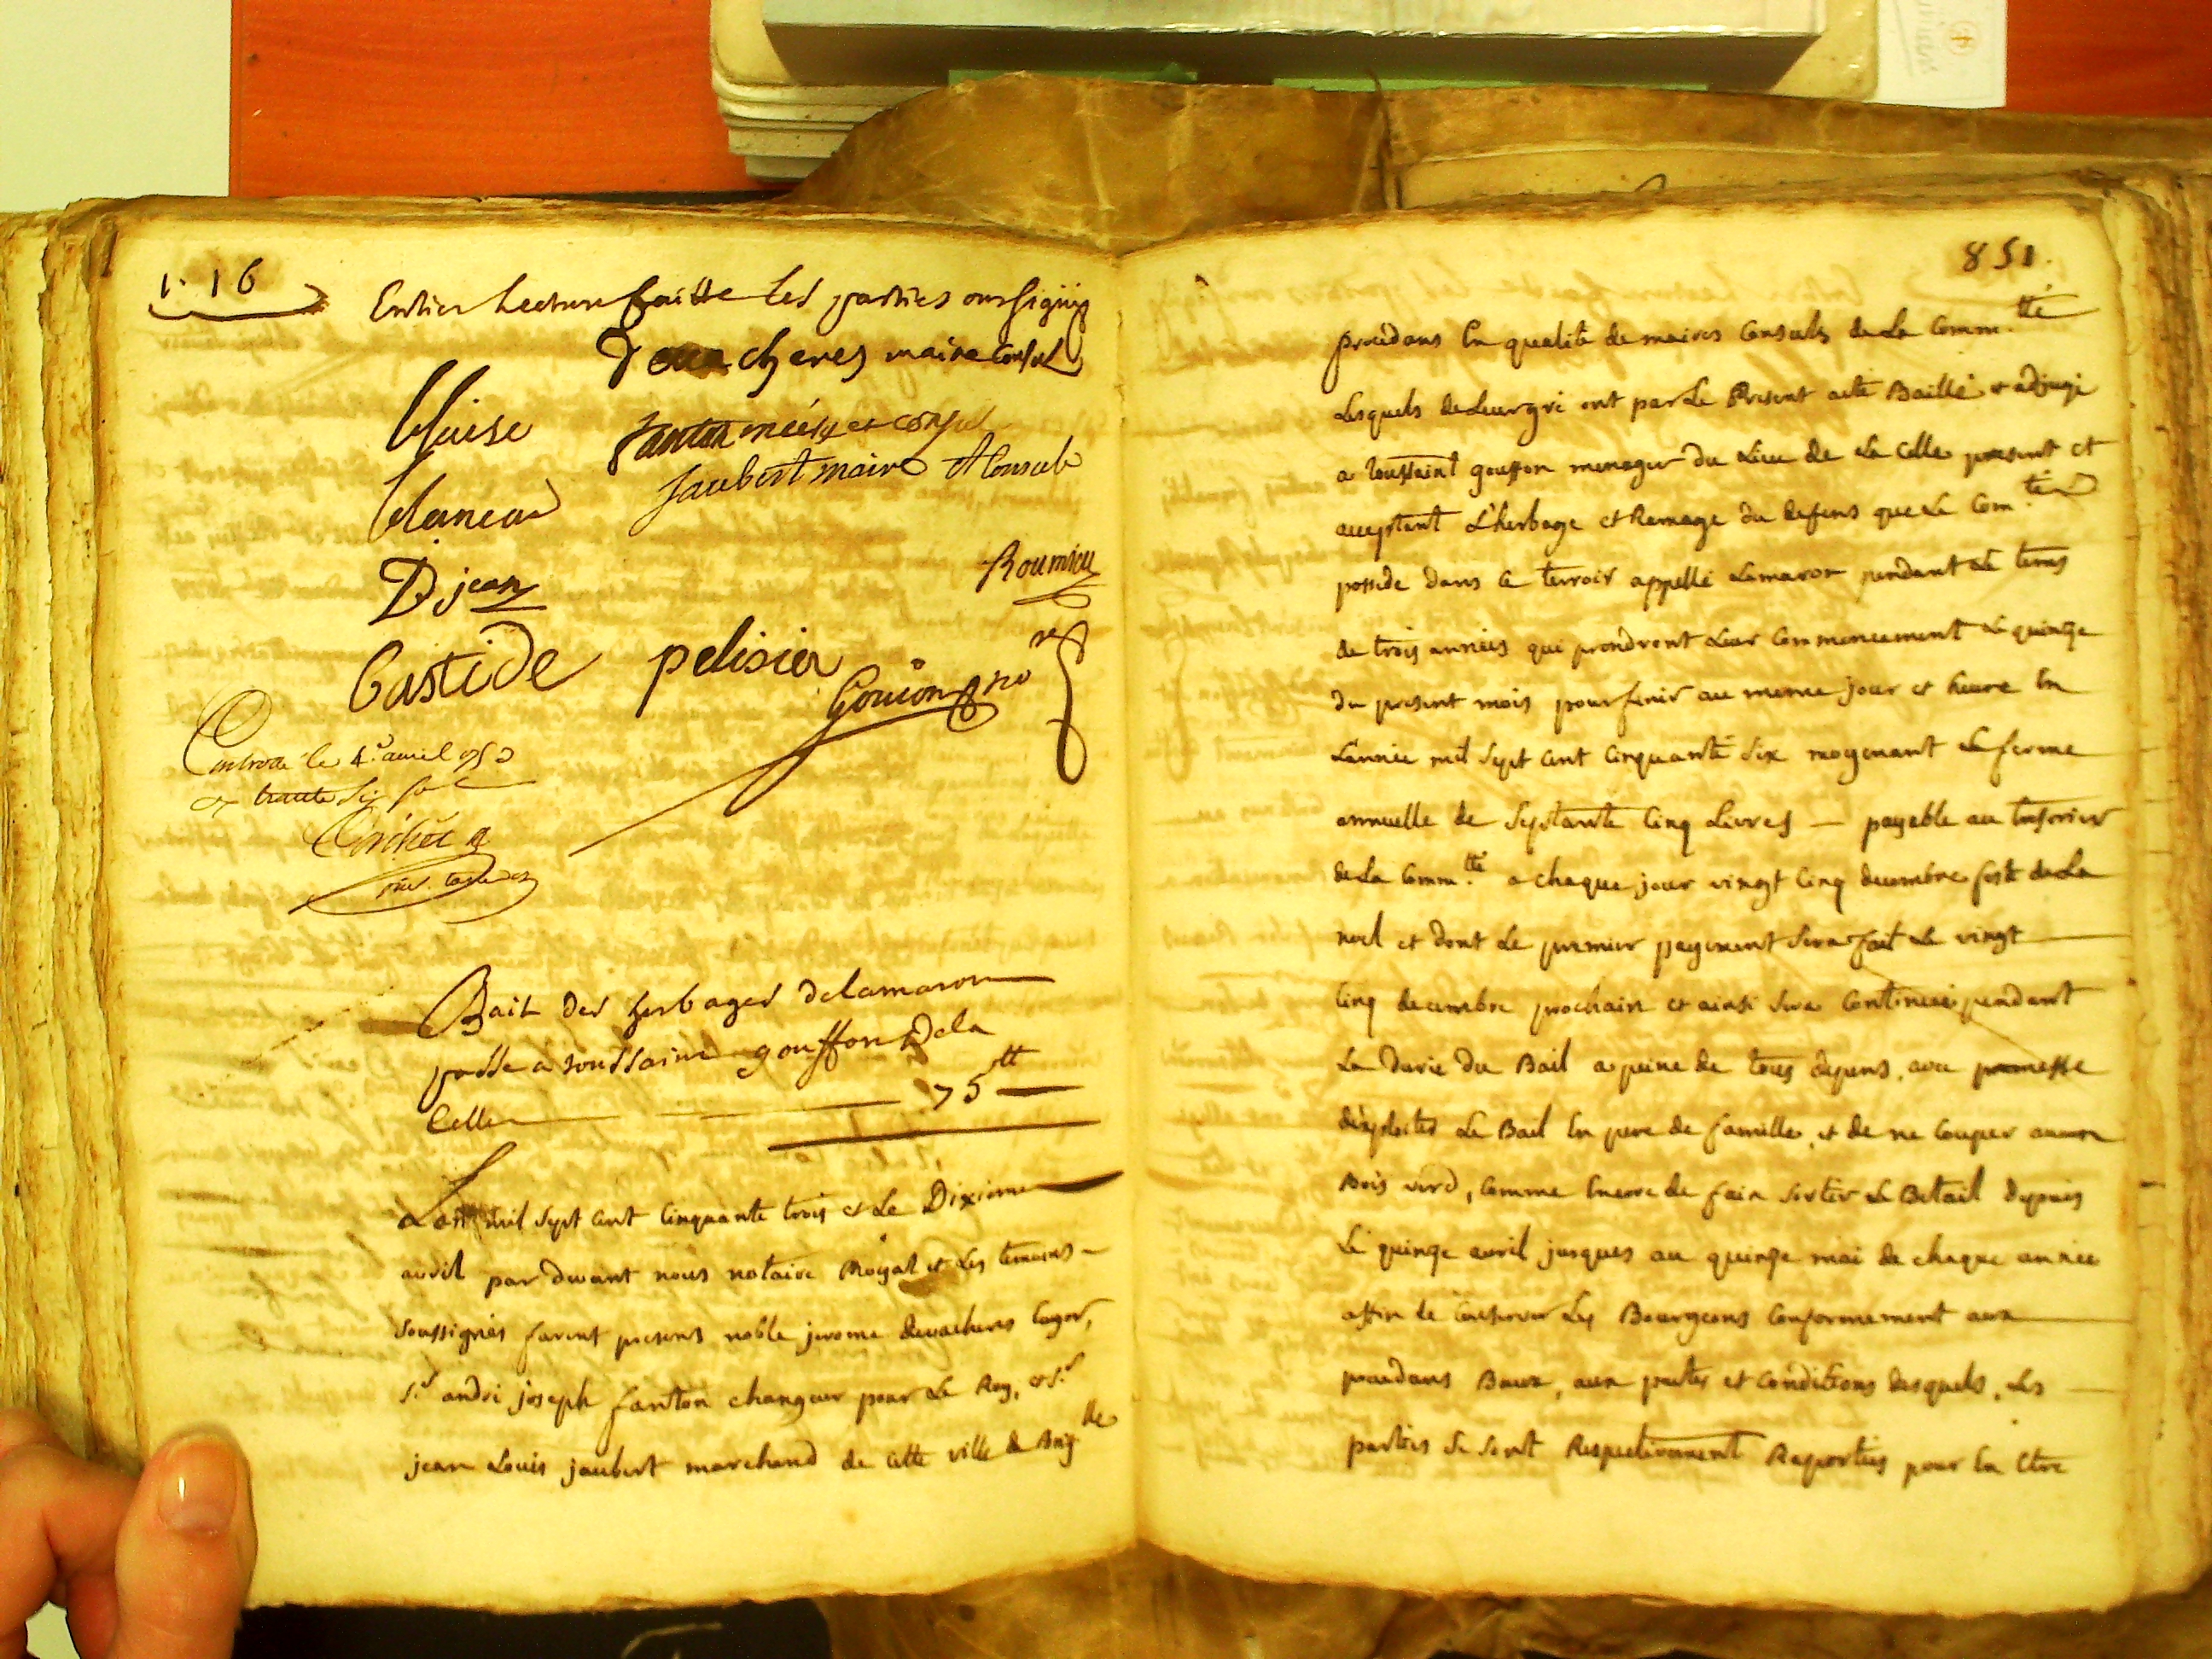 1. 16
Entier Lecture faitte les parties ont signé
cheres maire Consul
blaise
fanton meire et consul
Jaubert maire et Consul
blancard
Roumieu
D jean
bastide pelisier
Gouion no re
Controllé le 4e avril 753
trente six sols
Bail des herbages delamaron
passe a toussaint gouffon dela
Celle 75 tt
Lan mil sept cent cinquante trois et le Dixieme
avril par devant nous notaire Royal et les temoins
soussignés furent presens noble jerome
sr andré joseph fanton changeur pour le Roy, et sr
jean Louis jaubert marchand de cette ville de Brig lle
851.
procedans en qualité de maires Consuls de La Comm.tté
Lesquels de Leur gré ont par Le Present acte Baillé et adjugé
a toussaint gouffon menager du Lieu de La Celle present et
acceptant L'herbage et Ramage du defens que La Com.té
possede dans le terroir appellé Lamaron pendant Le tems
de trois années qui prendront Leur Commencement Le quinze
du present mois pour finir au meme jour et heure En
L'année mil sept cent cinquante six moyenant La ferme
annuelle de septante cinq Livres — payable au tresorier
de La Comm.tté a chaque jour vingt cinq decembre feste de La
noel et dont Le premier payement sera fait Le vingt
cinq decembre prochain et ainsi sera Continué pendant
La durée du Bail a peine de tous depens, avec promesse
d'exploiter Le Bail En pere de famille, et de ne Couper aucun
Bois verd, Comme Encore de faire sortir Le Betail depuis
Le quinze avril jusques au quinze mai de chaque année
affin de Conserver Les Bourgeons Conformement aux
precedans Baux, aux pactes et Conditions desquels, Les
parties se sont Respectivement Raportées pour En Etre